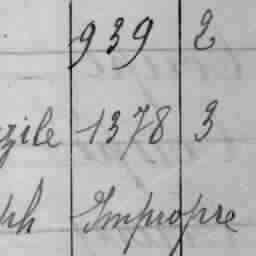 939 2
zile 1378 3
ph Impropre